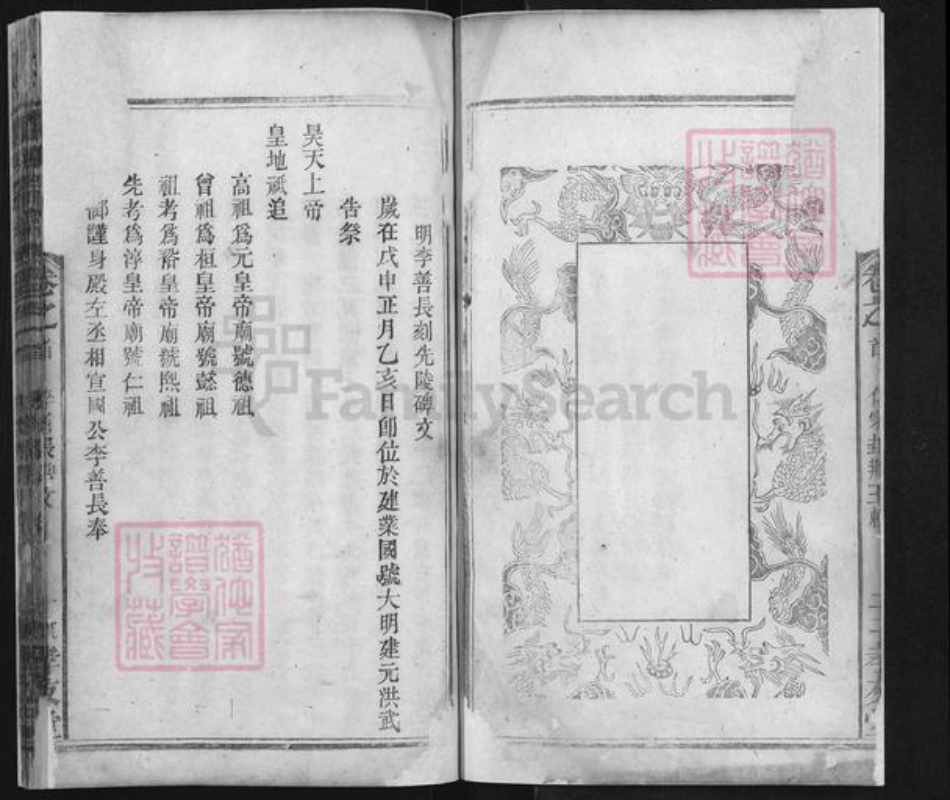 明李善長刻先陵碑文
歲在戊申正月乙亥日卽位於建業國號大明建元洪武
告祭
昊天上帝
皇地祇追
高祖爲元皇帝廟號德祖
曾祖爲桓皇帝廟號懿祖
祖考爲裕皇帝廟號熙祖
先考爲淳皇帝廟號仁祖
謹身殿左丞相宣國公李善長奉
卷之
卷之首
FamilySearch
猶他家譜學會收藏
猶他家譜學會收藏